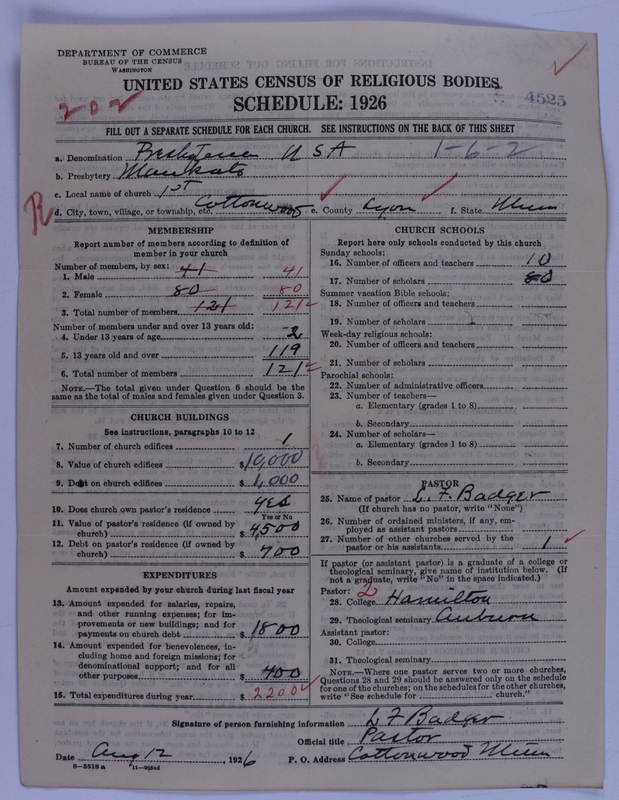 DEPARTMENT OF COMMERCE
BUREAU OF THE CENSUS
WASHINGTON
UNITED STATES CENSUS OF RELIGIOUS BODIES
SCHEDULE: 1926
202
4525
FILL OUT A SEPARATE SCHEDULE FOR EACH CHURCH. SEE INSTRUCTIONS ON THE BACK OF THIS SHEET
a. Denomination Presbyterian U S A 1-6-2
b. Presbytery Mankato
c. Local name of church 1st
R
d. City, town, village, or township, etc. Cottonwood e. County Lyon f. State Minn
MEMBERSHIP
Report number of members according to definition of member in your church
Number of members, by sex:
1. Male 41 41
2. Female 80 80
3. Total number of members 121 121
Number of members under and over 13 years old:
4. Under 13 years of age 2
5. 13 years old and over 119
6. Total number of members 121
NOTE.—The total given under Question 6 should be the same as the total of males and females given under Question 3.
CHURCH BUILDINGS
See instructions, paragraphs 10 to 12
7. Number of church edifices 1
8. Value of church edifices $10,000
9. Debt on church edifices $1,000
10. Does church own pastor's residence yes
Yes or No
11. Value of pastor's residence (if owned by church) $4,500
12. Debt on pastor's residence (if owned by church) $700
EXPENDITURES
Amount expended by your church during last fiscal year
13. Amount expended for salaries, repairs, and other running expenses; for improvements or new buildings; and for payments on church debt $1800
14. Amount expended for benevolences, including home and foreign missions; for denominational support; and for all other purposes $400
15. Total expenditures during year $2200
CHURCH SCHOOLS
Report here only schools conducted by this church
Sunday schools:
16. Number of officers and teachers 10
17. Number of scholars 80
Summer vacation Bible schools:
18. Number of officers and teachers
19. Number of scholars
Week-day religious schools:
20. Number of officers and teachers
21. Number of scholars
Parochial schools:
22. Number of administrative officers
23. Number of teachers—
a. Elementary (grades 1 to 8)
b. Secondary
24. Number of scholars—
a. Elementary (grades 1 to 8)
b. Secondary
PASTOR
25. Name of pastor L. F. Badger
(If church has no pastor, write "None")
26. Number of ordained ministers, if any, employed as assistant pastors
27. Number of other churches served by the pastor or his assistants 1
If pastor (or assistant pastor) is a graduate of a college or theological seminary, give name of institution below. (If not a graduate, write "No" in the space indicated.)
Pastor: 2
28. College Hamilton
29. Theological seminary Auburn
Assistant pastor:
30. College
31. Theological seminary
NOTE.—Where one pastor serves two or more churches, Questions 28 and 29 should be answered only on the schedule for one of the churches; on the schedules for the other churches, write "See schedule for ............ church."
Signature of person furnishing information L F Badger
Official title Pastor
Date Aug 12, 1926 P. O. Address Cottonwood Minn
8—5518 a